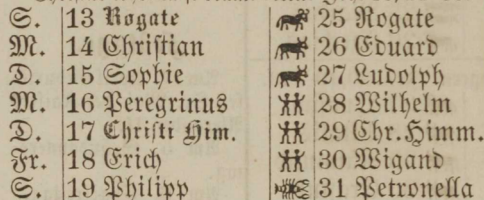 S. 13 Rogate 25 Rogate
M. 14 Chriſtian 26 Eduard
D. 15 Sophie 27 Ludolph
M. 16 Peregrinus 28 Wilhelm
D. 17 Chriſti Him. 29 Chr. Himm.
Fr. 18 Erich 30 Wigand
S. 19 Philipp 31 Petronella